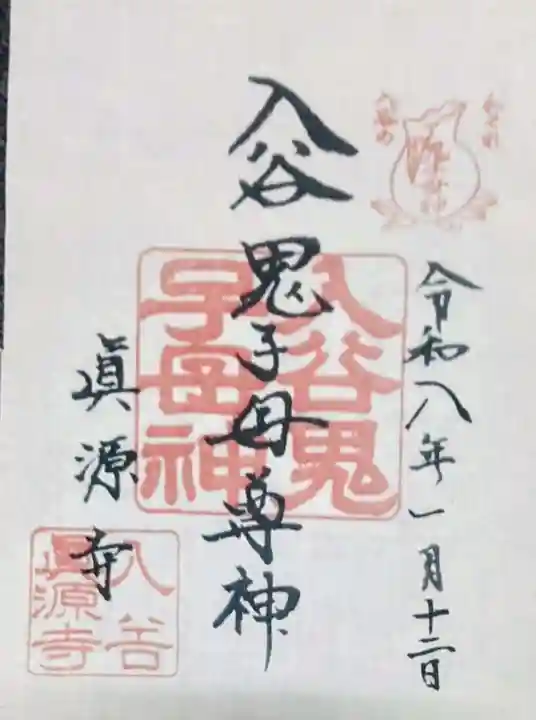 令和八年一月十二日
入谷鬼子母尊神
眞源寺
入谷鬼
子母神
入谷
眞源寺